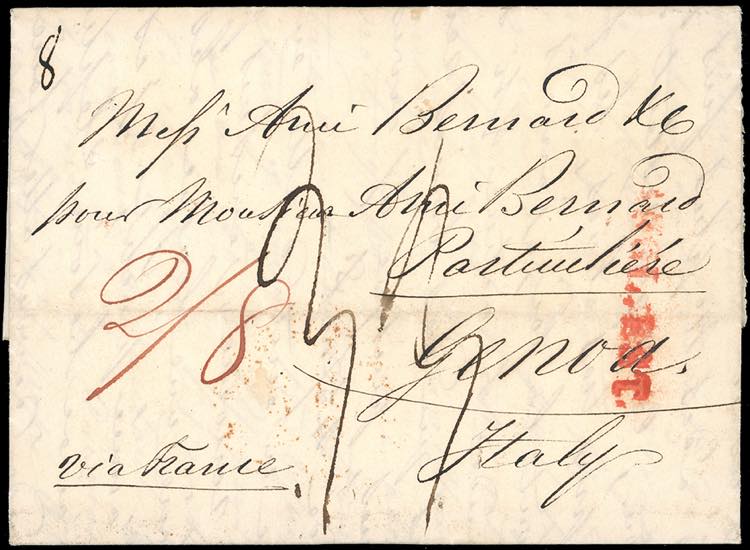 8
Messrs Ami Bernard & Co
pour Monsieur Ami Bernard
Particulière
2/8
Genoa.
Italy
via France